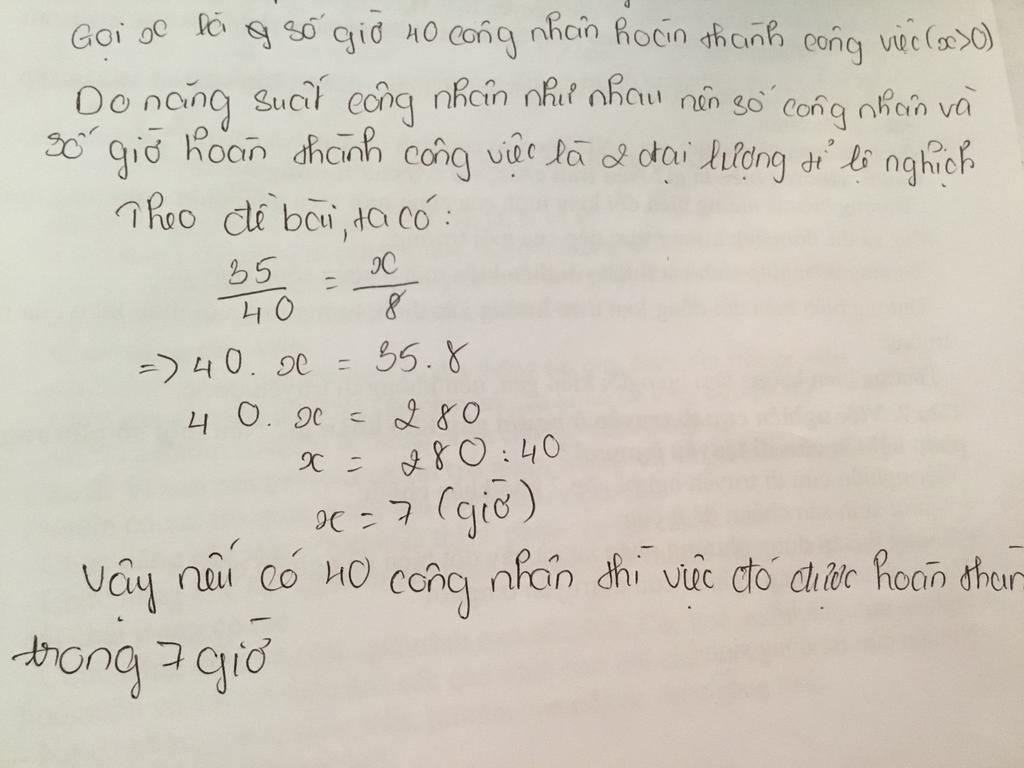 Gọi x là số giờ 40 công nhân hoàn thành công việc (x>0)
Do năng suất công nhân như nhau nên số công nhân và
số giờ hoàn thành công việc là 2 đại lượng tỉ lệ nghịch
Theo đề bài, ta có:
35/40 = x/8
=> 40. x = 35.8
40. x = 280
x = 280 : 40
x = 7 (giờ)
Vậy nếu có 40 công nhân thì việc đó được hoàn thàn
trong 7 giờ